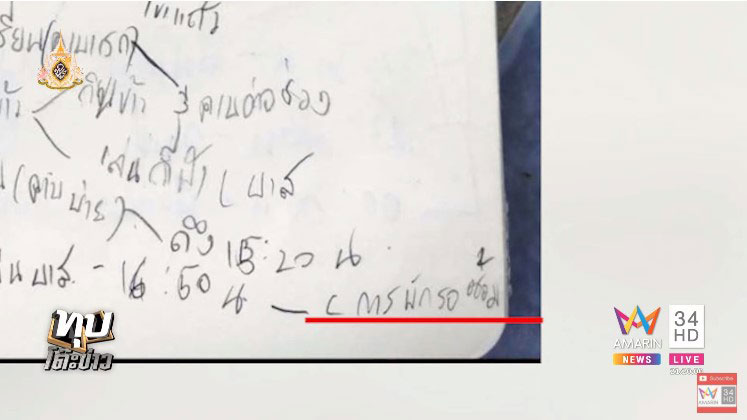 รียน(คาบแรก)
กินข้าว 3 คาบต่อช่อง
เล่นกีฬา ( บาส
(คาบบ่าย)
ถึง 15:20 น.
บาส - 16:50 น — ( การพักรอซ้อม
ทุบโต๊ะข่าว
AMARIN
NEWS
34
HD
LIVE
Subscribe
AMARIN 34 HD